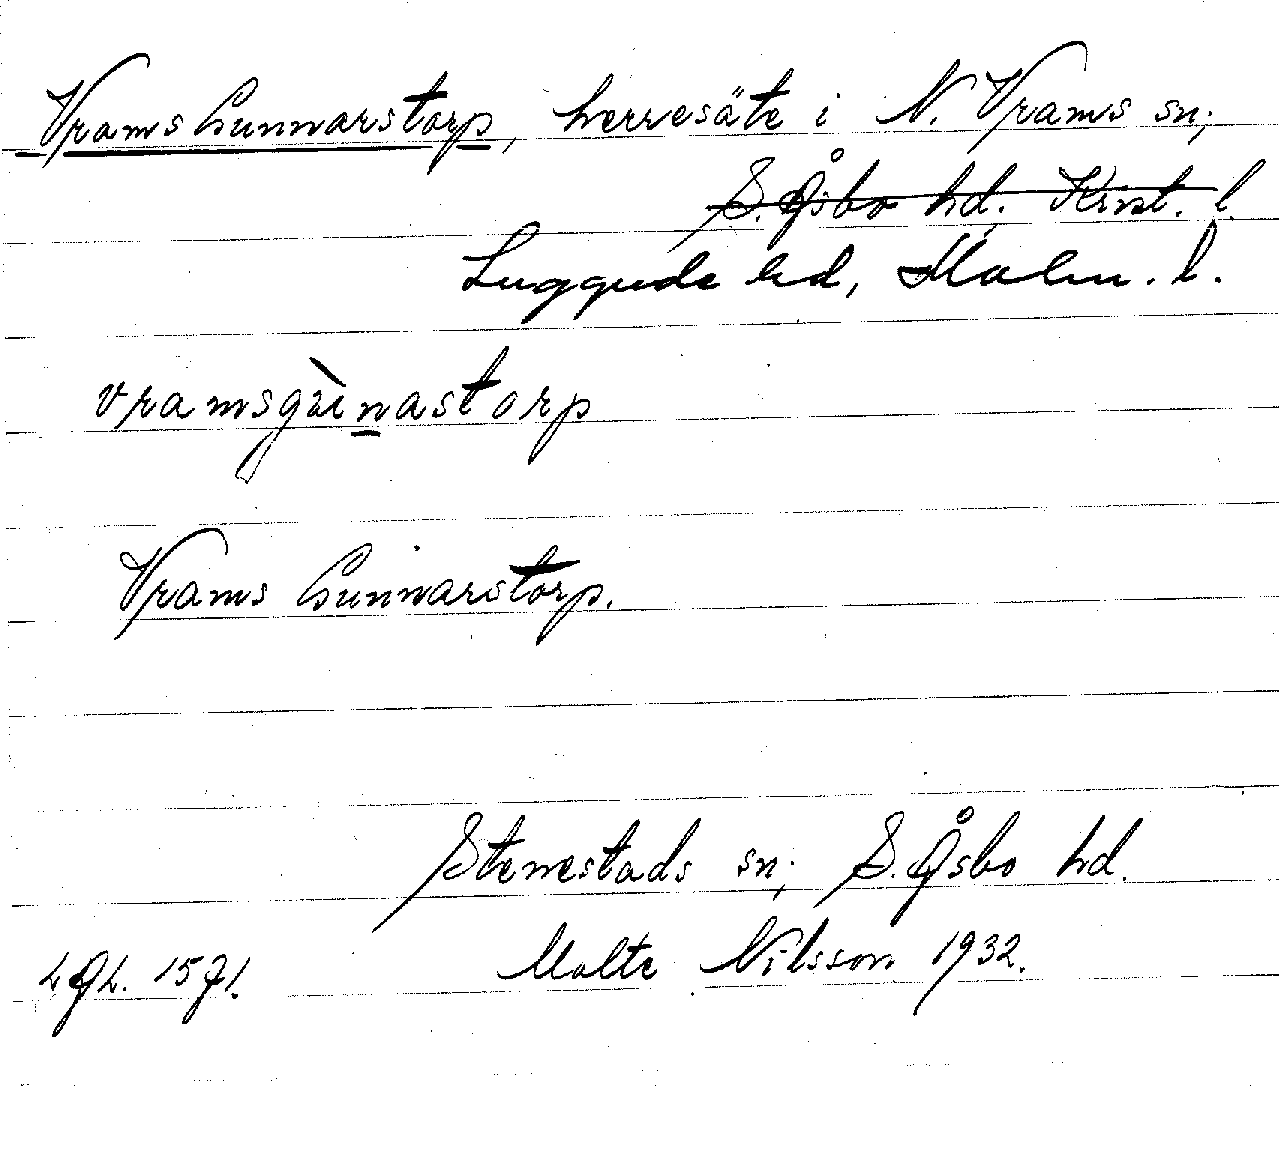 Vrams Gunnarstorp, herresäte i N. Vrams sn;
S. Åsbo hd. Krist. l.
Luggude hd, Malm. l.
Vrams Gunnarstorp.
Stenestads sn; S. Åsbo hd.
Malte Nilsson 1932.